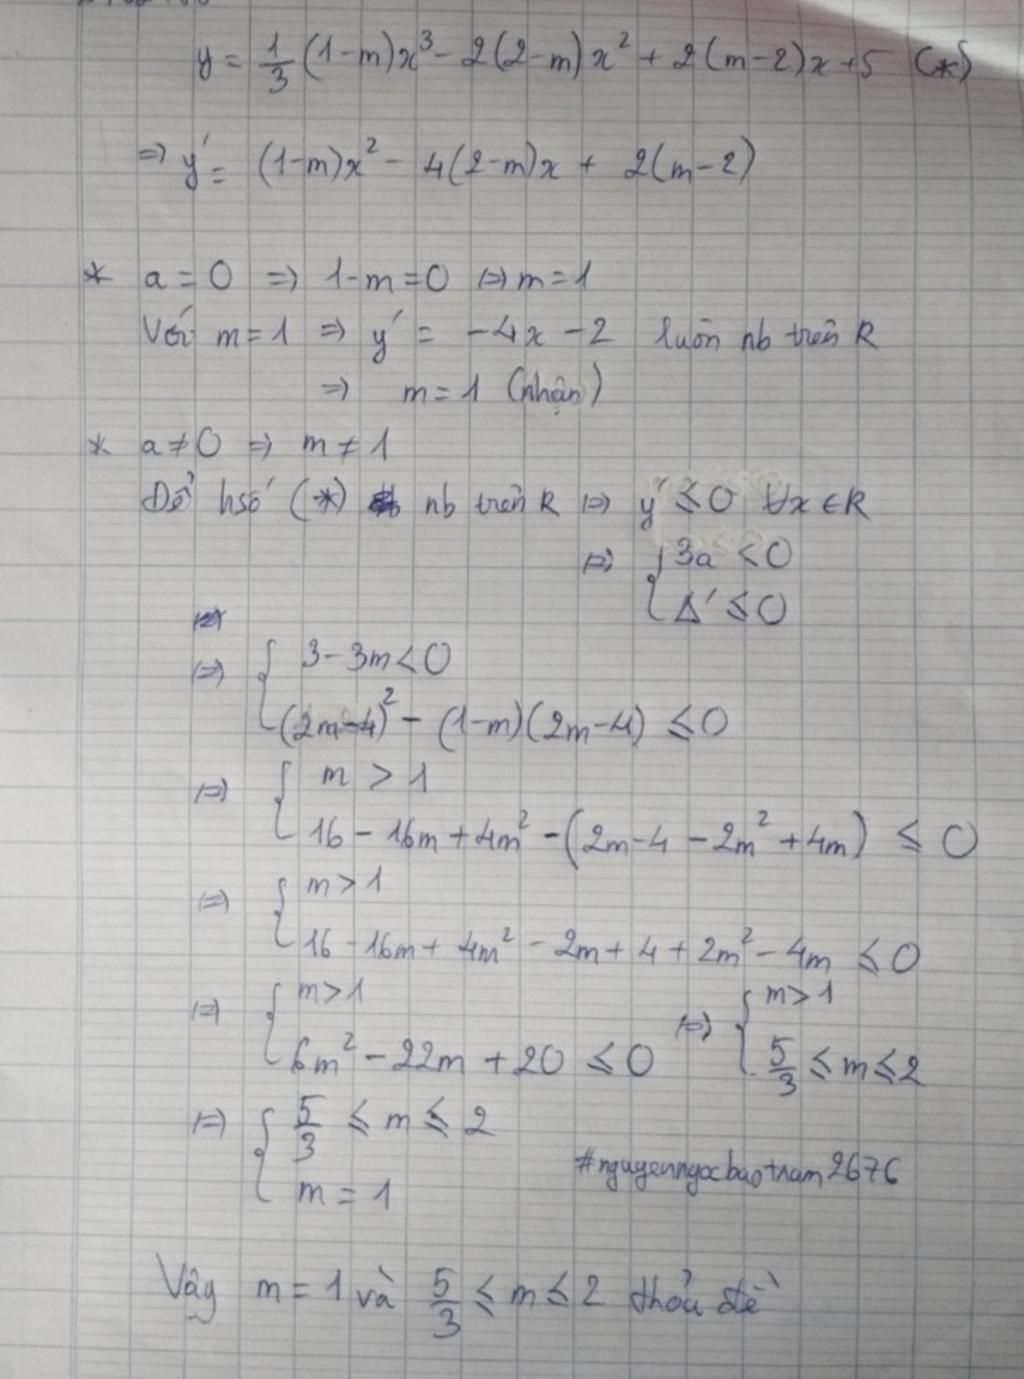 y = 1/3 (1-m)x³ - 2(2-m)x² + 2(m-2)x + 5 (*)
=> y' = (1-m)x² - 4(2-m)x + 2(m-2)
* a = 0 => 1-m = 0 <=> m = 1
Với m = 1 => y' = -4x - 2 luôn nb trên R
=> m = 1 (nhận)
* a ≠ 0 => m ≠ 1
Để hsố (*) nb trên R <=> y' ≤ 0 ∀x ∈ R
<=> { 3a < 0
Δ' ≤ 0
<=> { 3 - 3m < 0
(2m-4)² - (1-m)(2m-4) ≤ 0
<=> { m > 1
16 - 16m + 4m² - (2m - 4 - 2m² + 4m) ≤ 0
<=> { m > 1
16 - 16m + 4m² - 2m + 4 + 2m² - 4m ≤ 0
<=> { m > 1
6m² - 22m + 20 ≤ 0
<=> { m > 1
5/3 ≤ m ≤ 2
<=> { 5/3 ≤ m ≤ 2
m = 1
#nguyenngocbaotram2676
Vậy m = 1 và 5/3 ≤ m ≤ 2 thỏa đề